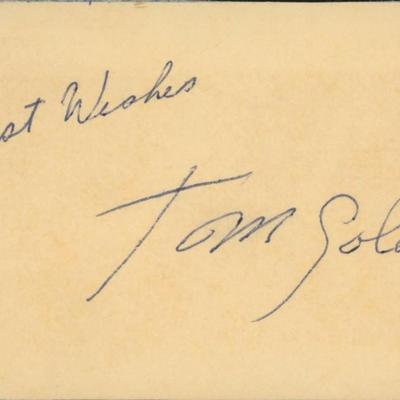 st Wishes
Tom Gola